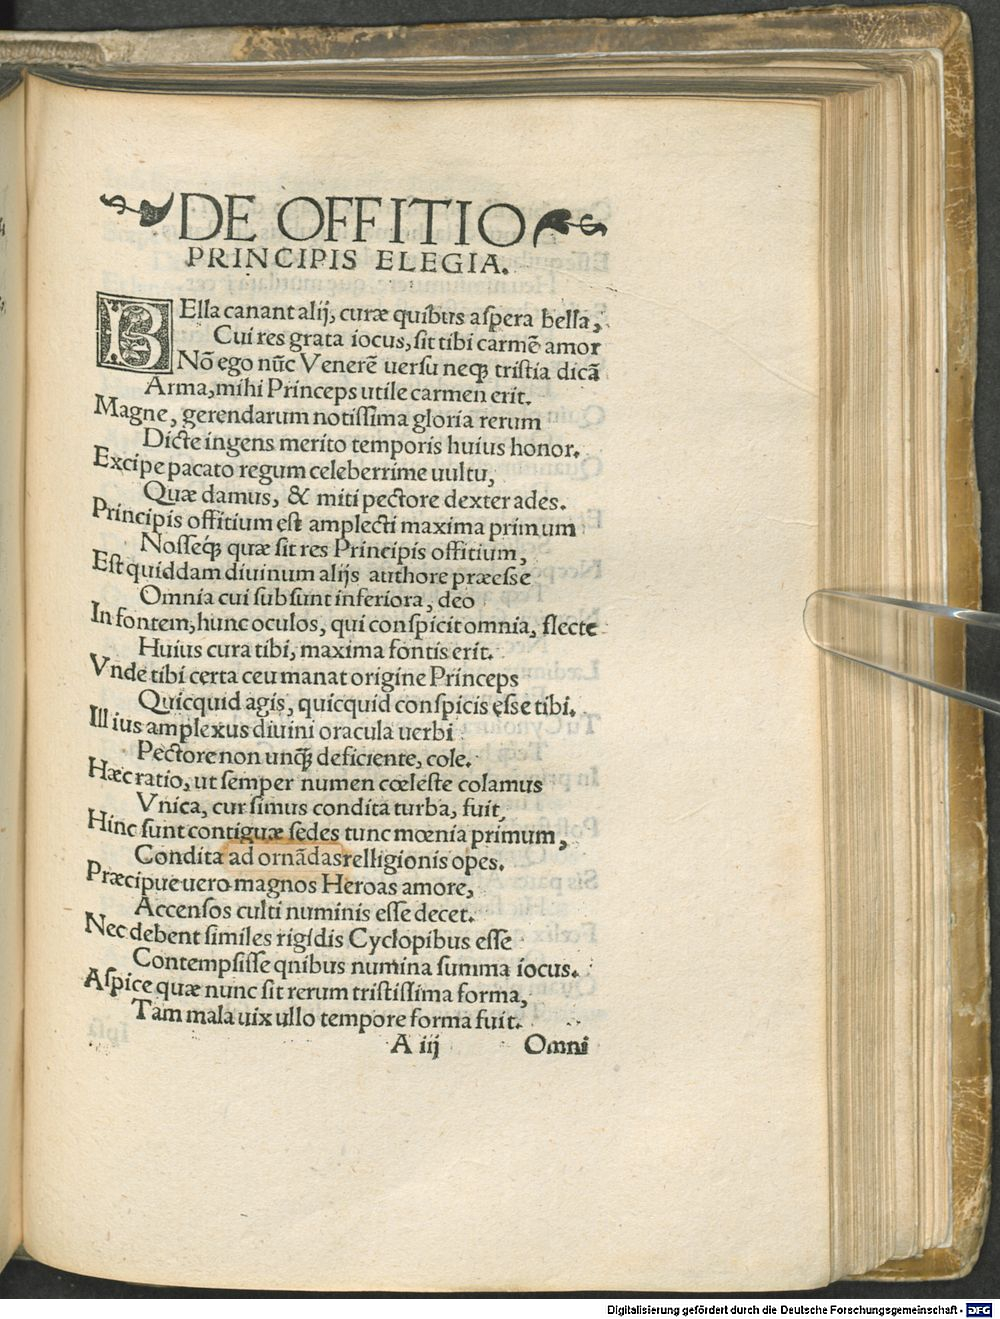 DE OFFITIO
PRINCIPIS ELEGIA.
BElla canant alij, curæ quibus aſpera bella,
Cui res grata iocus, ſit tibi carmē amor
Nō ego nūc Venerē uerſu neqꝫ triſtia dicā
Arma, mihi Princeps utile carmen erit.
Magne, gerendarum notiſſima gloria rerum
Dicte ingens merito temporis huius honor.
Excipe pacato regum celeberrime uultu,
Quæ damus, & miti pectore dexter ades.
Principis offitium eſt amplecti maxima primum
Noſſeqꝫ quæ ſit res Principis offitium,
Eſt quiddam diuinum alijs authore præeſſe
Omnia cui ſubſunt inferiora, deo
In fontem, hunc oculos, qui conſpicit omnia, flecte
Huius cura tibi, maxima fontis erit.
Vnde tibi certa ceu manat origine Princeps
Quicquid agis, quicquid conſpicis eſſe tibi.
Illius amplexus diuini oracula uerbi
Pectore non unqꝫ deficiente, cole.
Hæc ratio, ut ſemper numen cœleſte colamus
Vnica, cur ſimus condita turba, fuit,
Hinc ſunt contiguæ ſedes tunc mœnia primum,
Condita ad ornādas relligionis opes.
Præcipue uero magnos Heroas amore,
Accenſos culti numinis eſſe decet.
Nec debent ſimiles rigidis Cyclopibus eſſe
Contempſiſſe qnibus numina ſumma iocus.
Aſpice quæ nunc ſit rerum triſtiſſima forma,
Tam mala uix ullo tempore forma fuit.
A iij Omni
Digitalisierung gefördert durch die Deutsche Forschungsgemeinschaft - DFG